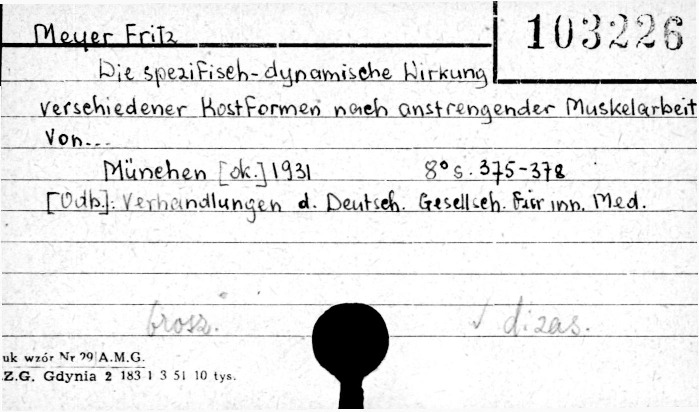 Meyer Fritz
103226
Die spezifisch-dynamische Wirkung
verschiedener Kostformen nach anstrengender Muskelarbeit
Von...
München [ok.] 1931 8° s. 375-378
[Odb]: Verhandlungen d. Deutsch. Gesellsch. Für inn. Med.
brosz. √ dizas.
uk wzór Nr 29 A.M.G.
Z.G. Gdynia 2 183 1 3 51 10 tys.